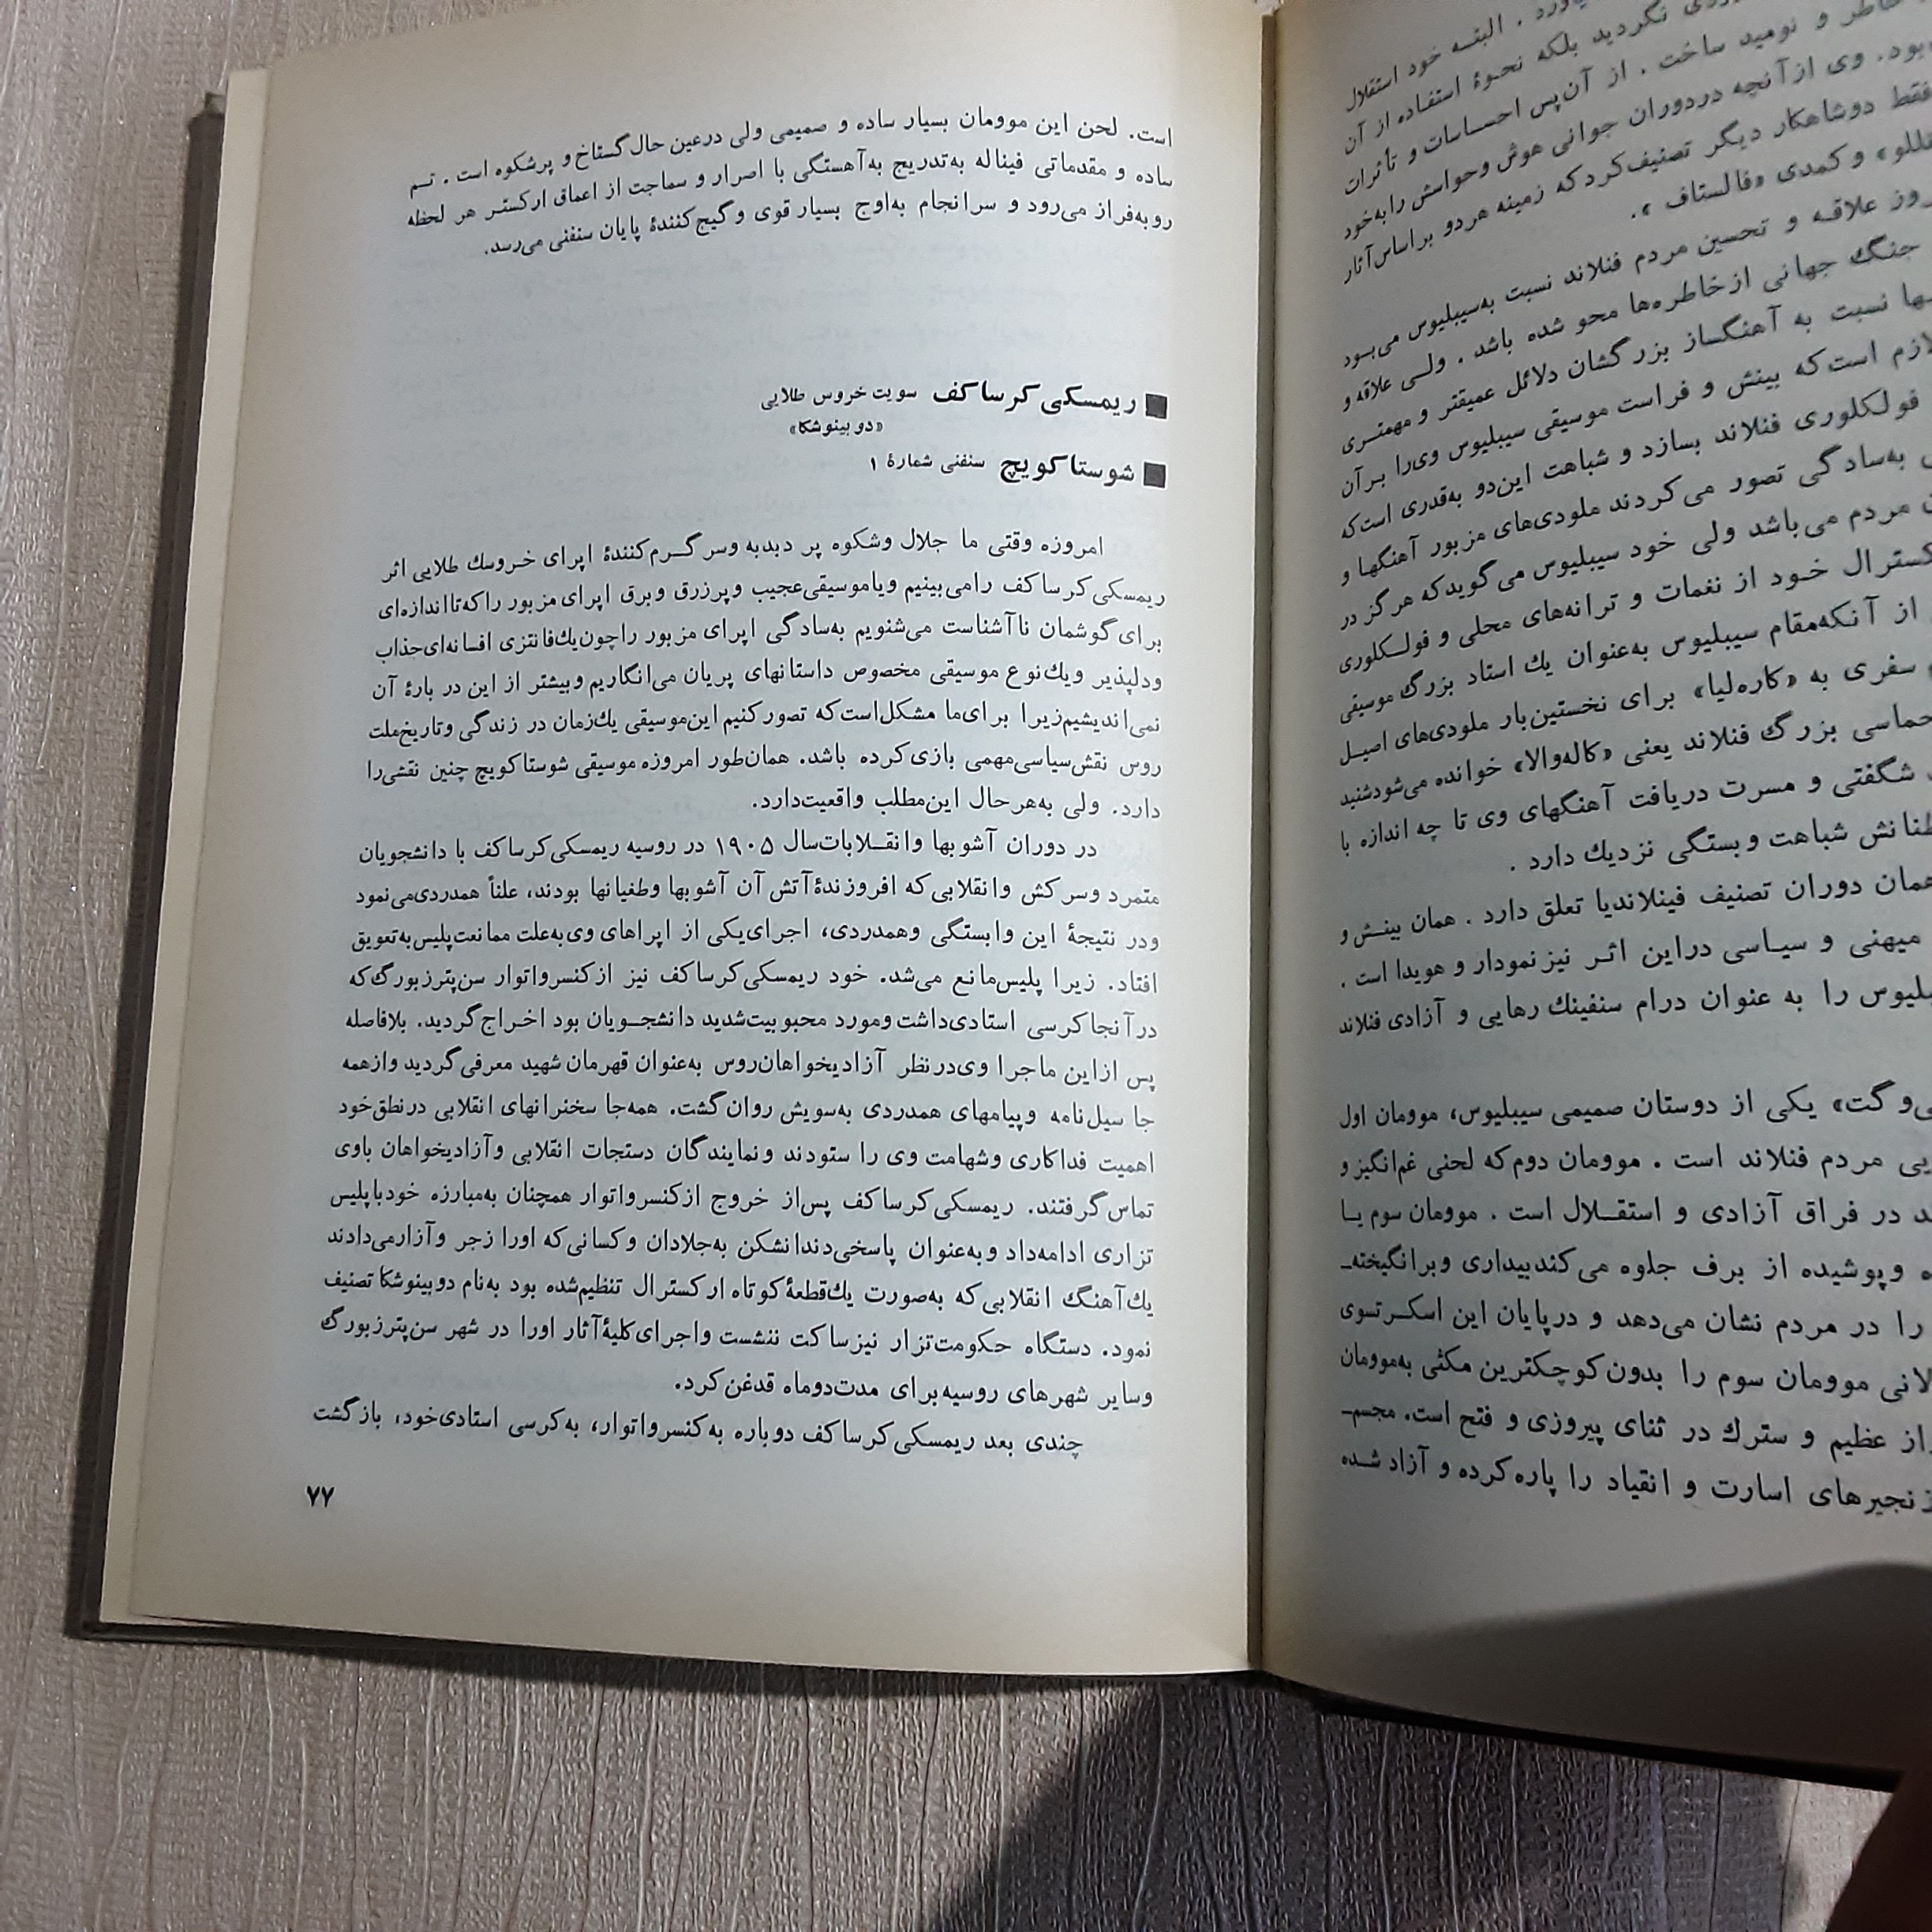 یاورد . البته خود استقلال
نگردید بلکه نحوهٔ استفاده از آن
خاطر و نومید ساخت . از آن‌پس احساسات و تأثرات
بود. وی ازآنچه دردوران جوانی هوش وحواس‌ش را به‌خود
فقط دوشاهکار دیگر تصنیف‌کردکه زمینه هردو براساس‌آثار
وکمدی «فالستاف».
روز علاقه و تحسین مردم فنلاند نسبت به‌سیبلیوس می‌بود
جنگ جهانی ازخاطره‌ها محو شده باشد . ولی علاقه و
نسبت به آهنگساز بزرگشان دلائل عمیقتر و مهمتری
لازم است‌که بینش و فراست موسیقی سیبلیوس وی‌را برآن
فولکلوری فنلاند بسازد و شباهت این‌دو به‌قدری است‌که
به‌سادگی تصور می‌کردند ملودی‌های مزبور آهنگها و
مردم می‌باشد ولی خود سیبلیوس می‌گویدکه هرگز در
خود از نغمات و ترانه‌های محلی و فولکلوری
از آنکه‌مقام سیبلیوس به‌عنوان یك استاد بزرگ موسیقی
سفری به «کاره‌لیا» برای نخستین‌بار ملودی‌های اصیل
حماسی بزرگ فنلاند یعنی «کاله‌والا» خوانده می‌شودشنید
شگفتی و مسرت دریافت آهنگهای وی تا چه اندازه با
شباهت وبستگی نزدیك دارد .
همان دوران تصنیف فینلاندیا تعلق دارد . همان بینش و
میهنی و سیاسی دراین اثر نیزنمودار و هویدا است .
را به عنوان درام سنفینك رهایی و آزادی فنلاند
یکی از دوستان صمیمی سیبلیوس، موومان اول
مردم فنلاند است . موومان دوم‌که لحنی غم‌انگیز و
در فراق آزادی و استقلال است . موومان سوم با
وپوشیده از برف جلوه می‌کندبیداری وبرانگیخته‌ـ
را در مردم نشان می‌دهد و درپایان این اسکرتسوی
موومان سوم را بدون‌کوچکترین مکثی به‌موومان
عظیم و سترك در ثنای پیروزی و فتح است. مجسم‌ـ
زنجیرهای اسارت و انقیاد را پاره‌کرده و آزاد شده
است. لحن این موومان بسیار ساده و صمیمی ولی درعین حال‌گستاخ و پرشکوه است . تم
ساده و مقدماتی فیناله به‌تدریج به‌آهستگی با اصرار و سماجت از اعماق ارکستر هر لحظه
روبه‌فراز می‌رود و سرانجام به‌اوج بسیار قوی وگیج‌کنندهٔ پایان سنفنی می‌رسد.
■ ریمسکی‌کرساکف سویت خروس طلایی
«دوبینوشکا»
■ شوستاکویچ سنفنی شمارهٔ ۱
امروزه وقتی ما جلال وشکوه پر دبدبه وسرگرم‌کنندهٔ اپرای خروسك طلایی اثر
ریمسکی‌کرساکف رامی‌بینیم ویاموسیقی‌عجیب وپرزرق وبرق اپرای مزبور راکه‌تااندازه‌ای
برای‌گوشمان ناآشناست می‌شنویم به‌سادگی اپرای مزبور راچون‌یك‌فانتزی افسانه‌ای‌جذاب
ودلپذیر ویك‌نوع موسیقی مخصوص داستانهای پریان می‌انگاریم وبیشتر از این در بارهٔ آن
نمی‌اندیشیم‌زیرا برای‌ما مشکل‌است‌که تصورکنیم این‌موسیقی یك‌زمان در زندگی وتاریخ‌ملت
روس نقش‌سیاسی‌مهمی بازی‌کرده باشد. همان‌طور امروزه موسیقی شوستاکویچ چنین نقشی‌را
دارد. ولی به‌هرحال این‌مطلب واقعیت‌دارد.
در دوران آشوبها وانقلابات‌سال ۱۹۰۵ در روسیه ریمسکی‌کرساکف با دانشجویان
متمرد وسرکش وانقلابی‌که افروزندهٔ‌آتش آن آشوبها وطغیانها بودند، علناً همدردی‌می‌نمود
ودر نتیجهٔ این وابستگی وهمدردی، اجرای‌یکی از اپراهای وی‌به‌علت ممانعت‌پلیس‌به‌تعویق
افتاد. زیرا پلیس‌مانع می‌شد. خود ریمسکی‌کرساکف نیز ازکنسرواتوار سن‌پترزبورگ‌که
درآنجاکرسی استادی‌داشت ومورد محبوبیت‌شدید دانشجویان بود اخراج‌گردید. بلافاصله
پس ازاین ماجرا وی‌درنظر آزادیخواهان‌روس به‌عنوان قهرمان شهید معرفی‌گردید وازهمه
جا سیل‌نامه وپیامهای همدردی به‌سویش روان‌گشت. همه‌جا سخنرانهای انقلابی درنطق‌خود
اهمیت فداکاری وشهامت وی را ستودند ونمایندگان دستجات انقلابی وآزادیخواهان باوی
تماس‌گرفتند. ریمسکی‌کرساکف پس‌از خروج ازکنسرواتوار همچنان به‌مبارزه خودباپلیس
تزاری ادامه‌داد وبه‌عنوان پاسخی‌دندانشکن به‌جلادان وکسانی‌که اورا زجر وآزارمی‌دادند
یك‌آهنگ انقلابی‌که به‌صورت یك‌قطعهٔ‌کوتاه ارکسترال تنظیم‌شده بود به‌نام دوبینوشکا تصنیف
نمود. دستگاه حکومت‌تزار نیزساکت ننشست واجرای‌کلیهٔ‌آثار اورا در شهر سن‌پترزبورگ
وسایر شهرهای روسیه‌برای مدت‌دوماه قدغن‌کرد.
چندی بعد ریمسکی‌کرساکف دوباره به‌کنسرواتوار، به‌کرسی استادی‌خود، بازگشت
۷۷